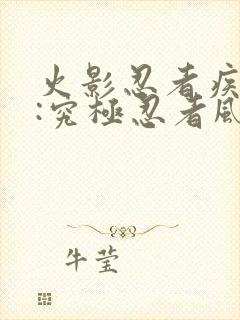 火影忍者疾
:究極忍者風
牛莹